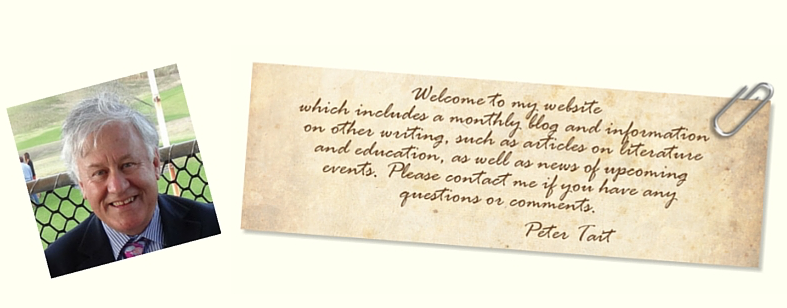 Welcome to my website
which includes a monthly blog and information
on other writing, such as articles on literature
and education, as well as news of upcoming
events. Please contact me if you have any
questions or comments.
Peter Tait